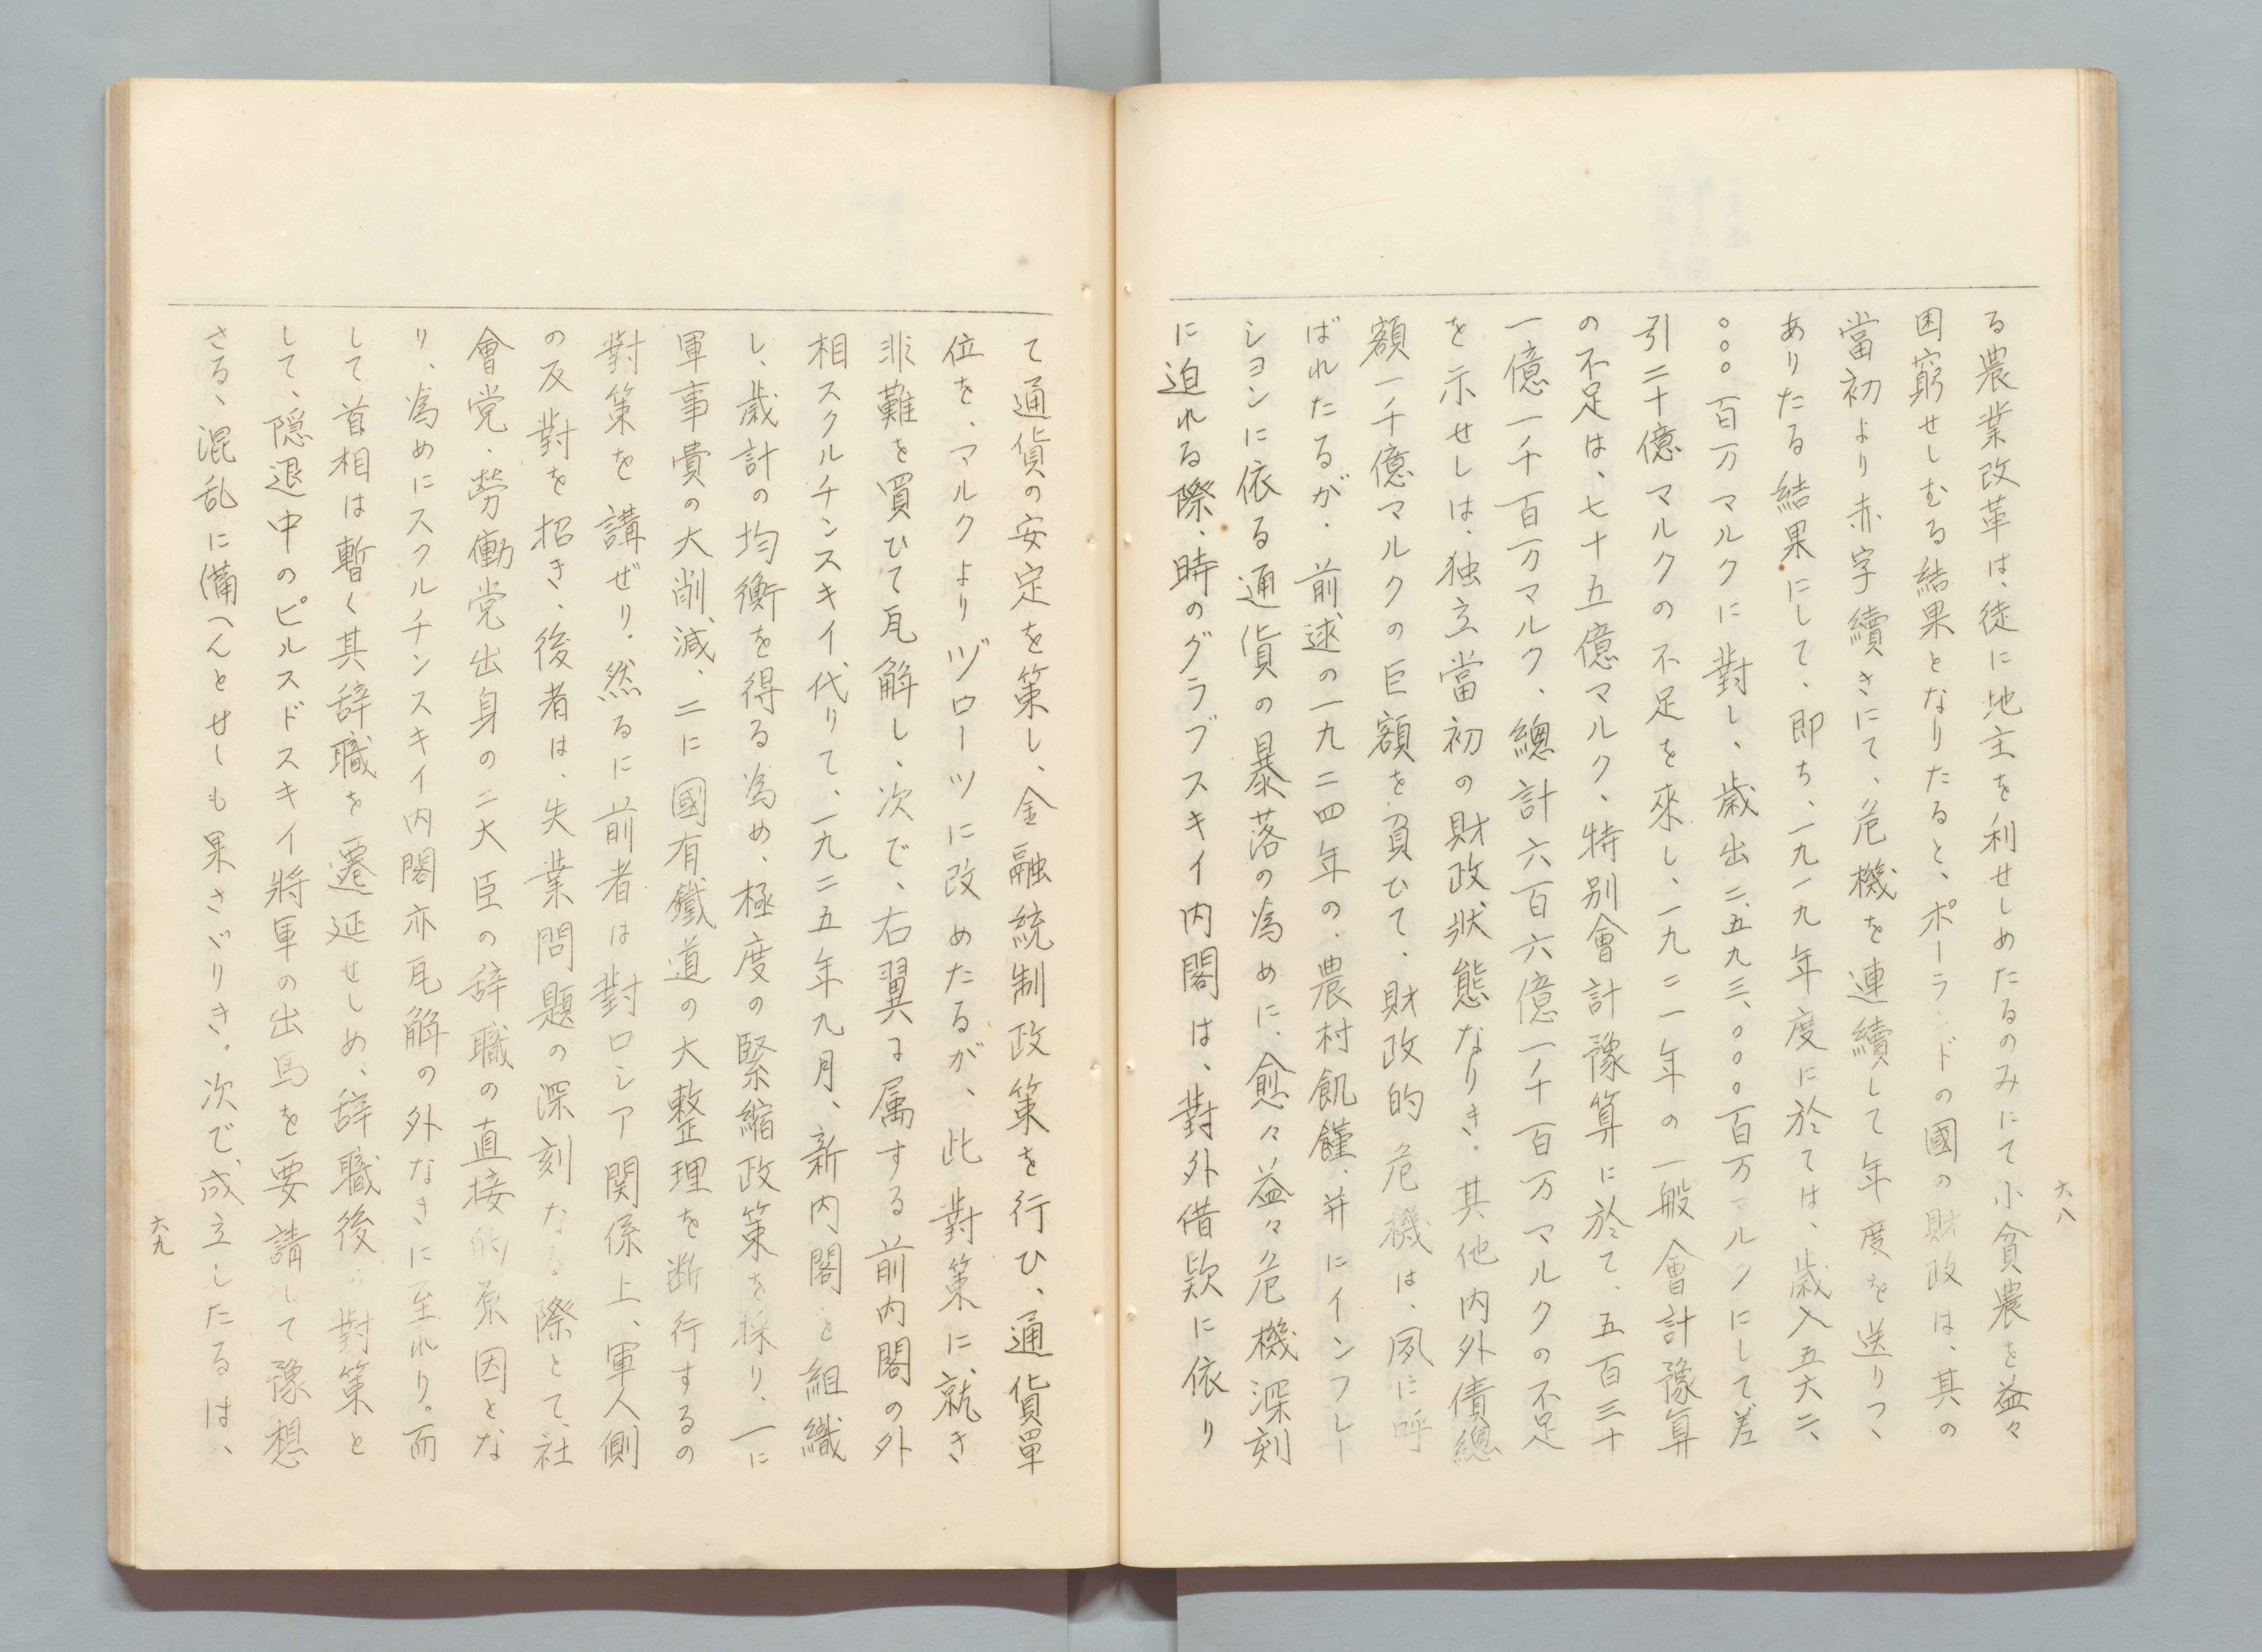 六八
る農業改革は、徒に地主を利せしめたるのみにて小貧農を益々
困窮せしむる結果となりたると、ポーランドの國の財政は、其の
當初より赤字續きにて、危機を連續して年度を送りつゝ
ありたる結果にして、即ち、一九一九年度に於ては、歳入五六二、
〇〇〇百万マルクに對し、歳出二、五九三、〇〇〇百万マルクにして差
引二十億マルクの不足を來し、一九二一年の一般會計豫算
の不足は、七十五億マルク、特別會計豫算に於て、五百三十
一億一千百万マルク、總計六百六億一千百万マルクの不足
を示せしは、独立當初の財政狀態なりき。其他内外債總
額一千億マルクの巨額を負ひて、財政的危機は、夙に呼
ばれたるが、前述の一九二四年の、農村飢饉、并にインフレー
ションに依る通貨の暴落の為めに、愈々益々危機深刻
に迫れる際、時のグラブスキイ内閣は、對外借款に依り
て通貨の安定を策し、金融統制政策を行ひ、通貨單
位を、マルクよりヅローツに改めたるが、此對策に就き
非難を買ひて瓦解し、次で、右翼に属する前内閣の外
相スクルチンスキイ代りて、一九二五年九月、新内閣を組織
し、歳計の均衡を得る為め、極度の緊縮政策を採り、一に
軍事費の大削減、二に國有鐵道の大整理を断行するの
對策を講ぜり。然るに前者は對ロシア関係上、軍人側
の反對を招き、後者は、失業問題の深刻なる際とて、社
會党、勞働党出身の二大臣の辞職の直接的原因とな
り、為めにスクルチンスキイ内閣亦瓦解の外なきに至れり。而
して首相は暫く其辞職を遷延せしめ、辞職後の對策と
して、隠退中のピルスドスキイ將軍の出馬を要請して豫想
さる、混乱に備へんとせしも果さゞりき。次で、成立したるは、
六九